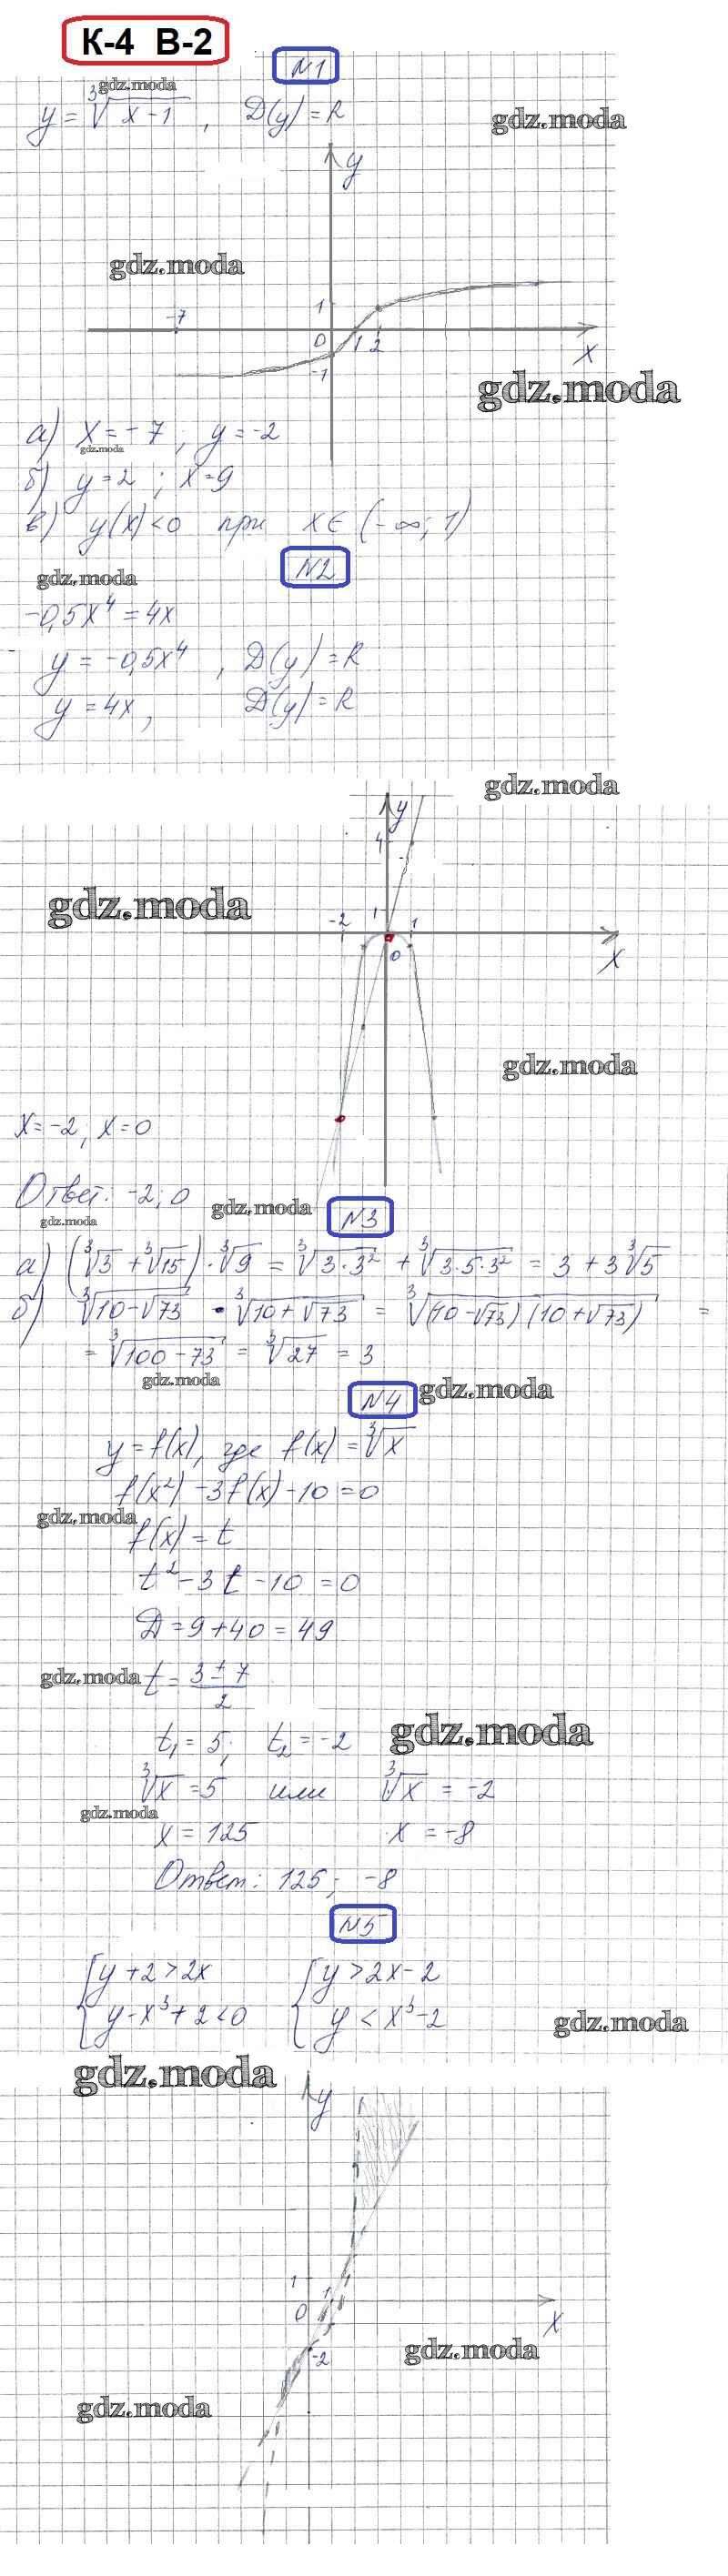 К-4 В-2
N1
gdz.moda
y = ∛(x-1) , D(y) = R
gdz.moda
y
gdz.moda
-7 1 0 1 2 -1
x
gdz.moda
а) x = -7 ; y = -2
gdz.moda
б) y = 2 ; x = 9
в) y(x) < 0 при x ∈ (-∞; 1)
N2
gdz.moda
-0,5x⁴ = 4x
y = -0,5x⁴ , D(y) = R
y = 4x , D(y) = R
gdz.moda
y
4
gdz.moda
-2 1 1
0 x
gdz.moda
x = -2 ; x = 0
Ответ: -2; 0
gdz.moda
gdz.moda
N3
а) (∛3 + ∛15) · ∛9 = ∛(3·3²) + ∛(3·5·3²) = 3 + 3∛5
б) ∛(10-√73) · ∛(10+√73) = ∛((10-√73)(10+√73)) =
= ∛(100-73) = ∛27 = 3
gdz.moda
N4
gdz.moda
y = f(x), где f(x) = ∛x
f(x²) - 3f(x) - 10 = 0
gdz.moda
f(x) = t
t² - 3t - 10 = 0
D = 9 + 40 = 49
gdz.moda
t = (3 ± 7)/2
t₁ = 5; t₂ = -2
gdz.moda
∛x = 5 или ∛x = -2
gdz.moda
x = 125 x = -8
Ответ: 125; -8
N5
{ y + 2 > 2x { y > 2x - 2
{ y - x³ + 2 < 0 { y < x³ - 2
gdz.moda
gdz.moda
y
1
0 1
x
-2
gdz.moda
gdz.moda